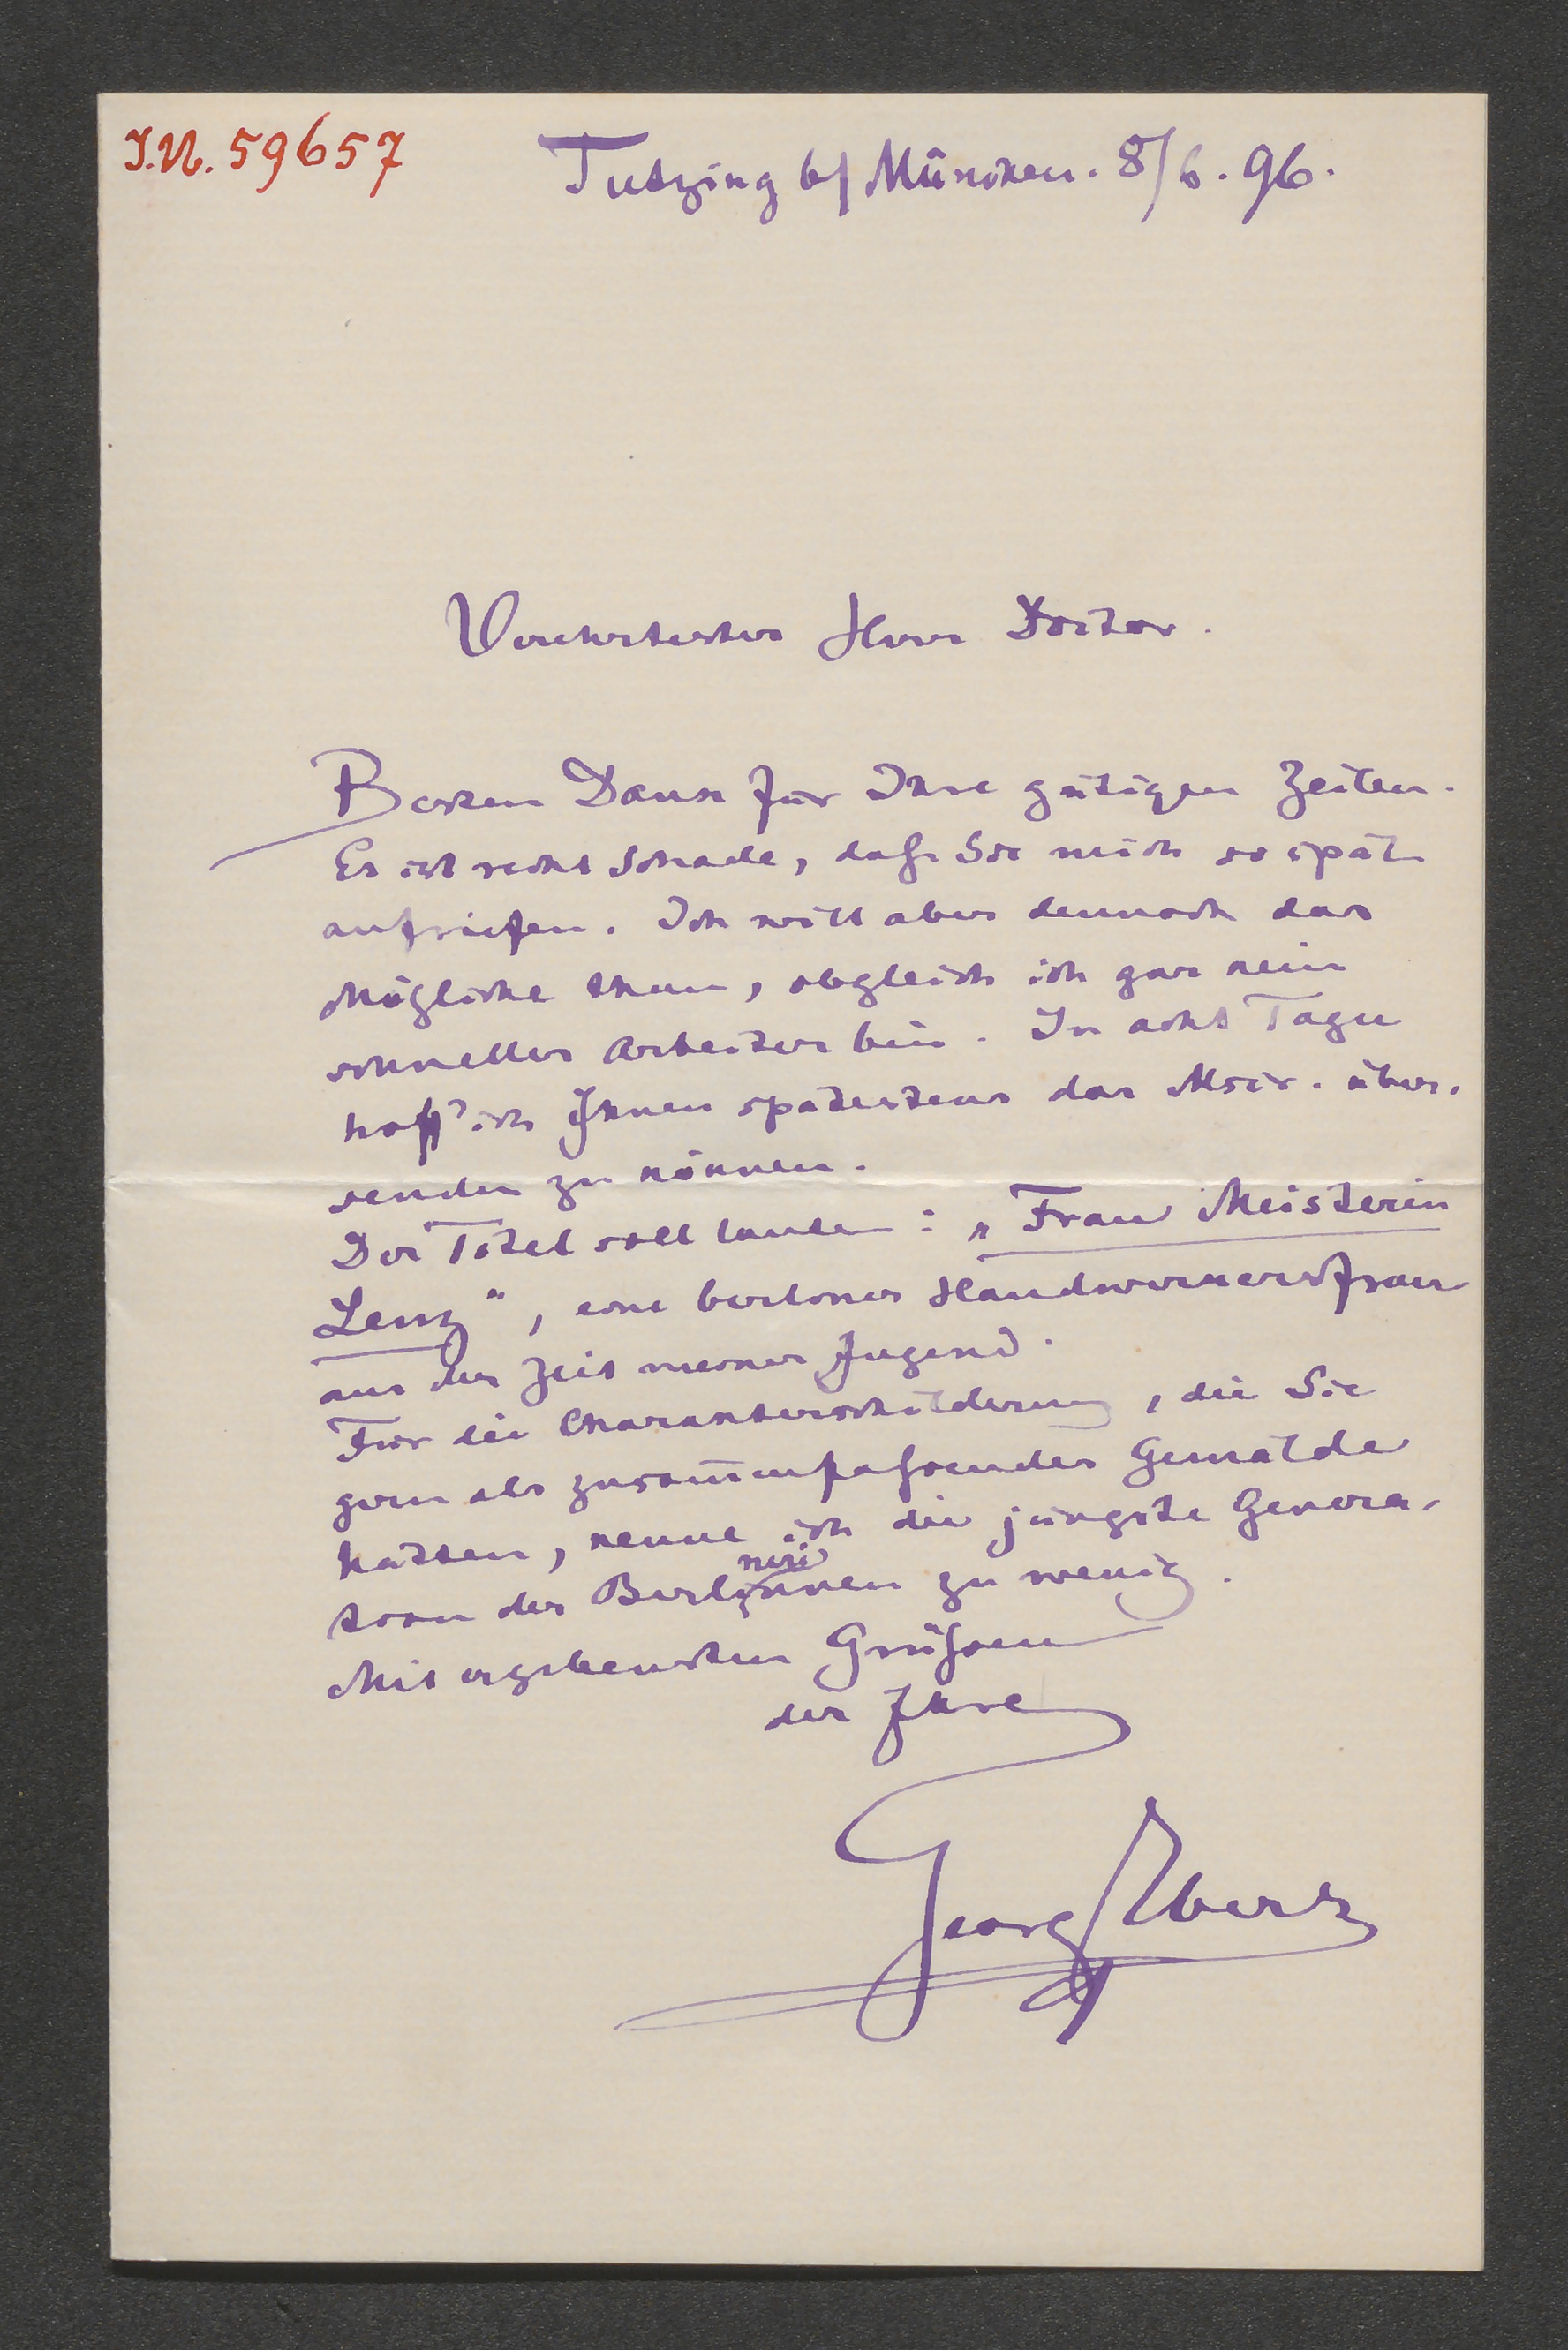 I.N. 59657
Tutzing b/ München. 8/6. 96.
Verehrtester Herr Doctor.
Besten Dank für Ihre gütigen Zeilen.
Es ist recht schade, daß Sie mich so spät
aufriefen. Ich will aber dennoch das
Mögliche thun, obgleich ich gar kein
schneller Arbeiter bin. In acht Tagen
hoff' ich Ihnen spätestens das Mscr. über-
senden zu können.
Der Titel soll lauten: „Frau Meisterin
Lenz“, eine berliner Handwerkersfrau
aus der Zeit meiner Jugend.
Für die Charakterschilderung, die Sie
gern als zusam̅enfaßendes Gemälde
hätten, kenne ich die jüngste Genera-
tion der Berlinerinnen zu wenig.
Mit ergebensten Grüßen
der Ihre
Georg Ebers